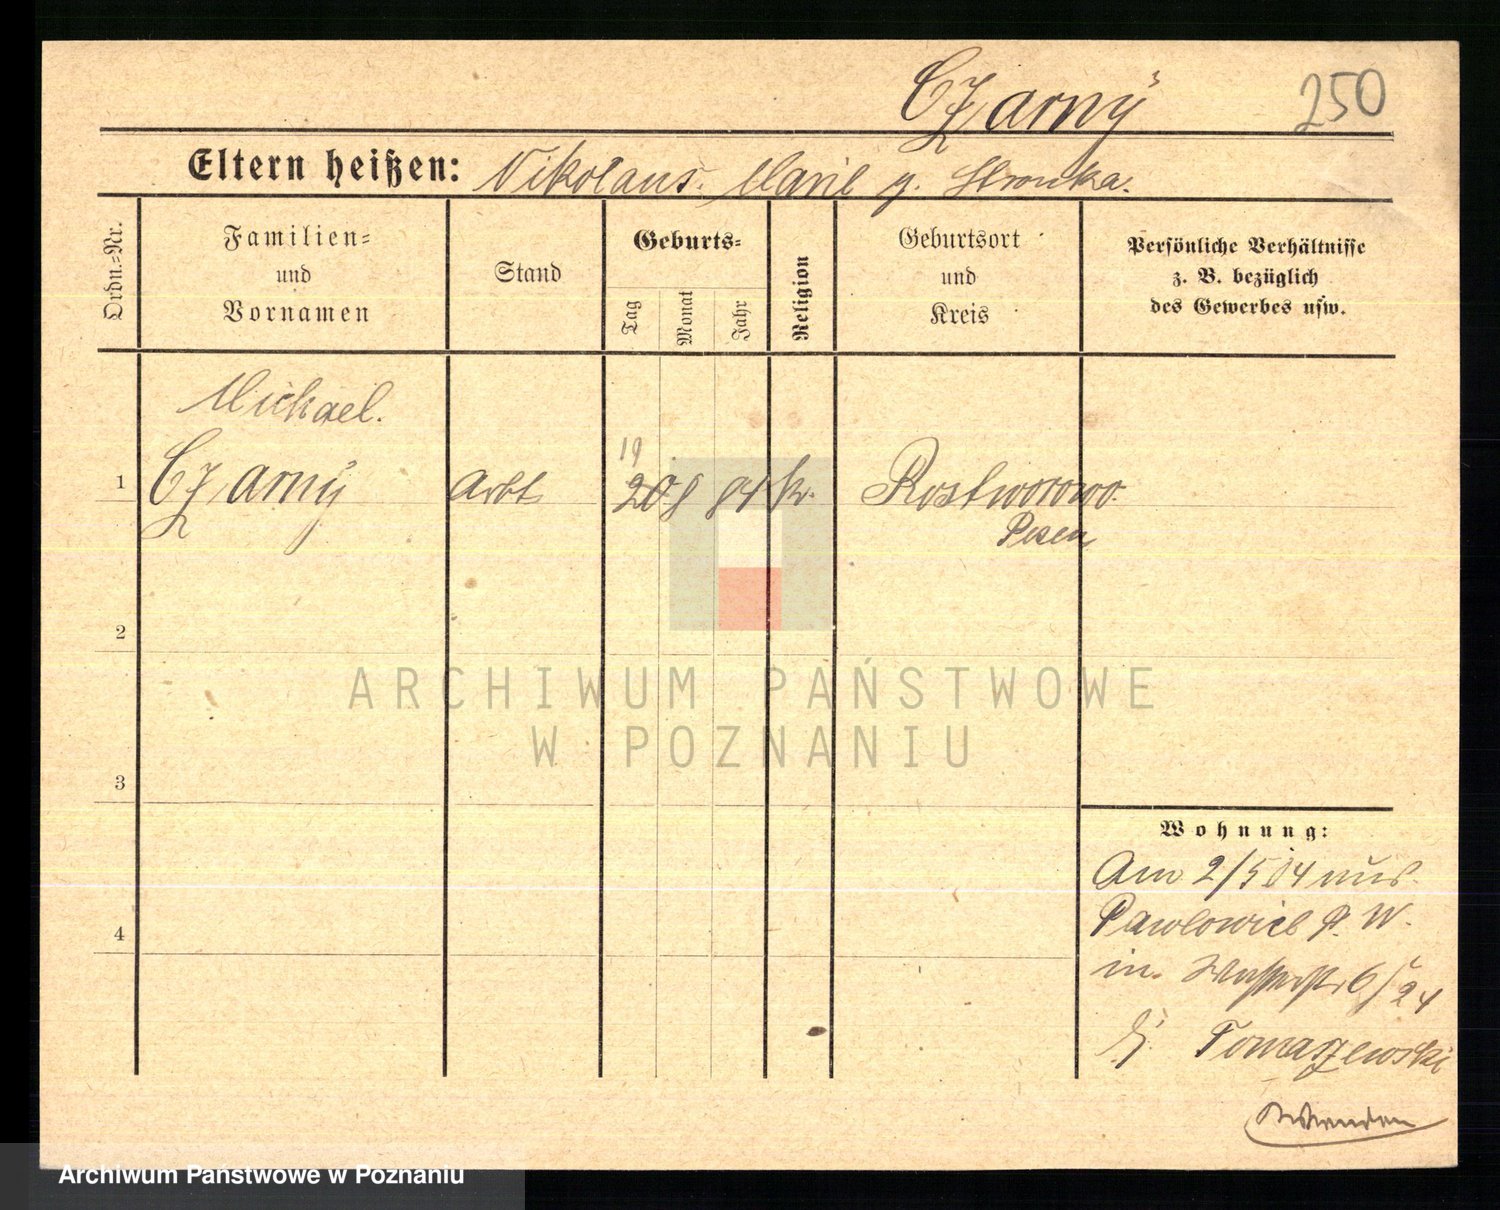 Czarny 250
Eltern heißen: Nikolaus. Marie g. Skronka.
Ordn.=Nr.
Familien=
und
Vornamen
Stand
Geburts=
Tag
Monat
Jahr
Religion
Geburtsort
und
Kreis
Persönliche Verhältnisse
z. B. bezüglich
des Gewerbes usw.
Michael.
19
1 Czarny Arbt 20 8 84 k. Rostworowo.
Posen
2
3
4
Wohnung:
Am 2/5 04 aus
Pawlowice P. W.
in. 6/24
Tomaszewski
ARCHIWUM PAŃSTWOWE
W POZNANIU
Archiwum Państwowe w Poznaniu